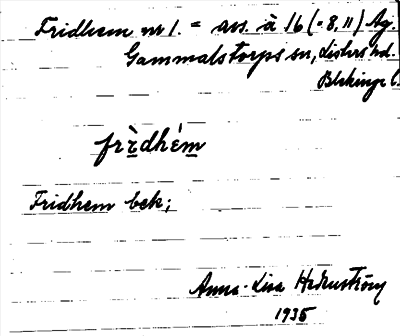 Fridhem nr 1. = avs. à 16 (= 8, 11) Ag.
Gammalstorps sn, Listers hd.
Blekinge l.
frìdhém
Fridhem bek;
Anna-Lisa
1935